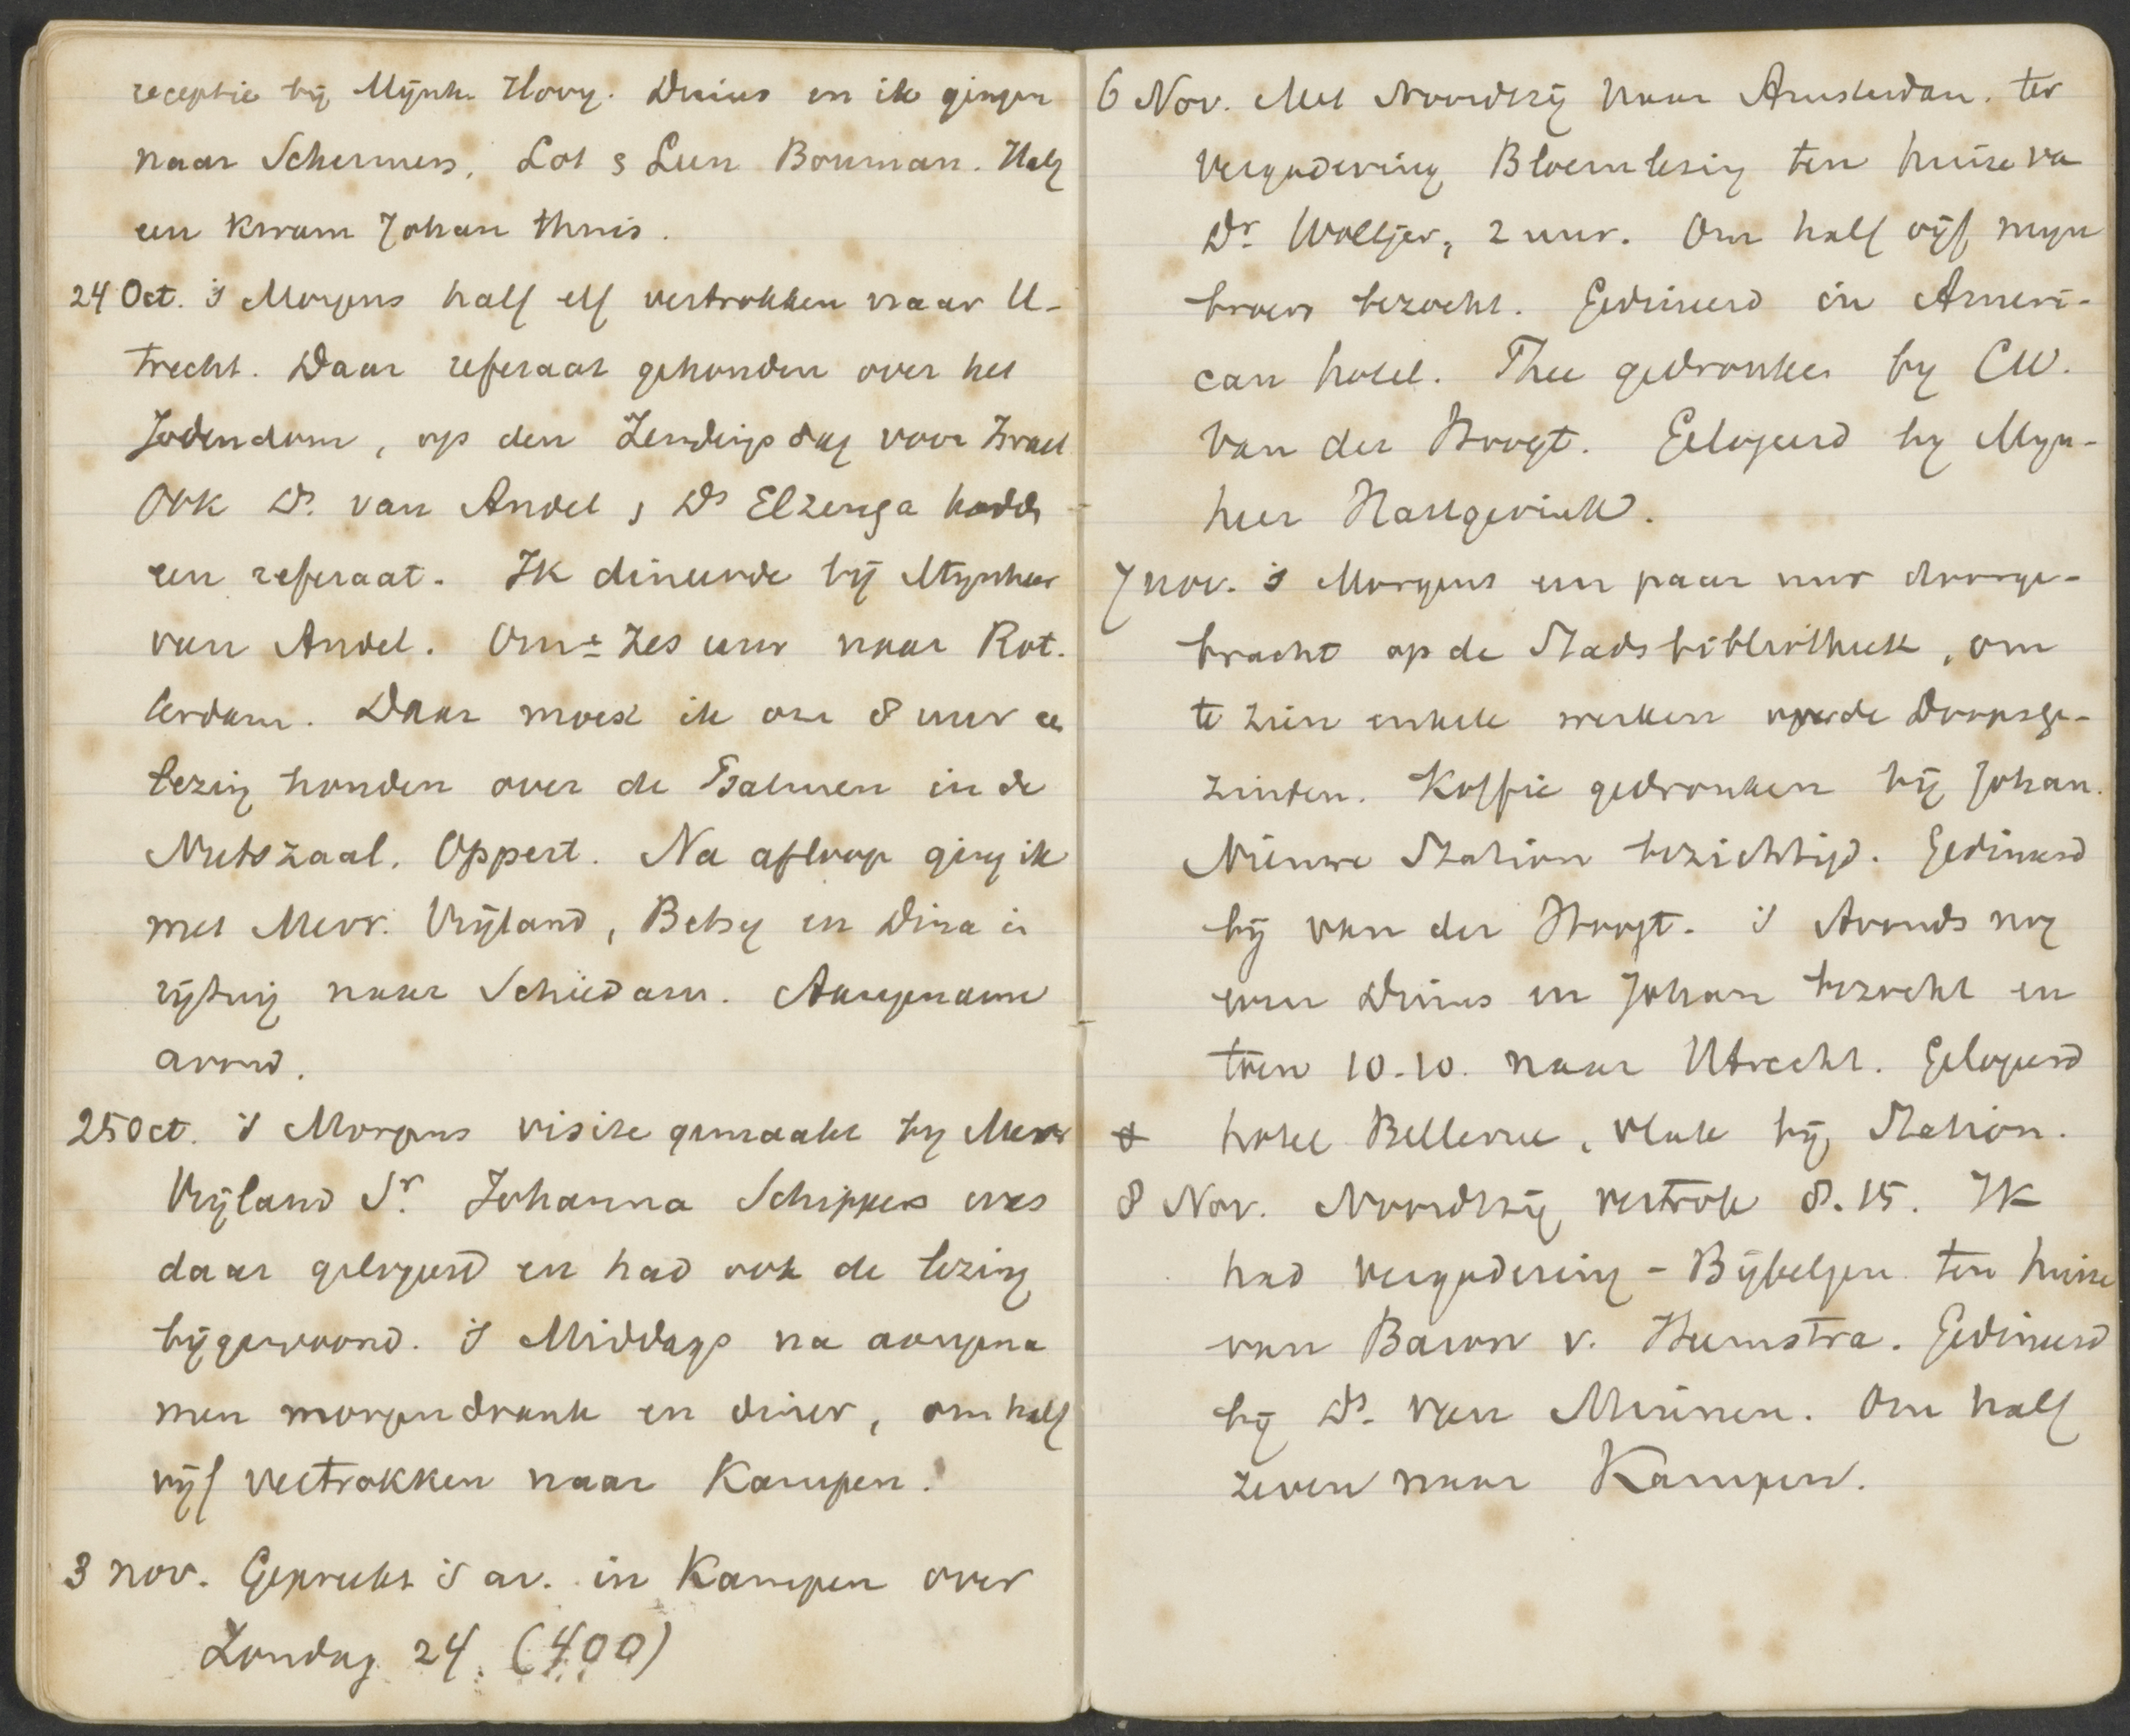 receptie bij Mijnh. Hovy. Dinus en ik gingen
naar Schermers, Lot & Leen Bouman. Half
een kwam Johan thuis.
24 Oct. 's Morgens half elf vertrokken naar U-
trecht. Daar referaat gehouden over het
Jodendom, op den Zendingsdag voor Israel
Ook Ds. van Andel & Ds Elzenga hadde
een referaat. Ik dineerde bij Mijnheer
van Andel. Om ± zes uur naar Rot.
terdam. Daar moest ik om 8 uur ee
lezing houden over de Psalmen in de
Nutszaal, Oppert. Na afloop ging ik
met Mevr. Vrijland, Betsy en Dina i
rijtuig naar Schiedam. Aangename
avond.
25 Oct. 's Morgens visite gemaakt by Mevr
Vrijland Sr. Johanna Schippers was
daar gelogeerd en had ook de lezing
bijgewoond. 's Middags na aangena
men morgendrank en diner, om half
vijf vertrokken naar Kampen.
3 nov. Gepreekt 's av. in Kampen over
Zondag 24. (400)
6 Nov. Met Noordtzij naar Amsterdam. ter
vergadering Bloemlezing ten huize va
Dr. Woltjer, 2 uur. Om half vijf mijn
broers bezocht. Gedineerd in Ameri-
can hotel. Thee gedronken by CW.
van der Hoogt. Gelogeerd by Myn-
heer Hartgerink.
7 nov. 's Morgens een paar uur doorge-
bracht op de Stadsbibliotheek, om
te zien enkele werken over de Doopsge-
zinden. Koffie gedronken bij Johan.
Nieuwe Station bezichtigd. Gedineerd
bij van der Hoogt. 's Avonds nog
even Dinus en Johan bezocht en
toen 10.10. naar Utrecht. Gelogeerd
8 hotel Bellevue, vlak bij Station.
8 Nov. Noordtzij vertrok 8.15. Ik
had vergadering - Bijbelgen. ten huize
van Baron v. Heemstra. Gedineerd
bij Ds. van Minnen. Om half
zeven naar Kampen.